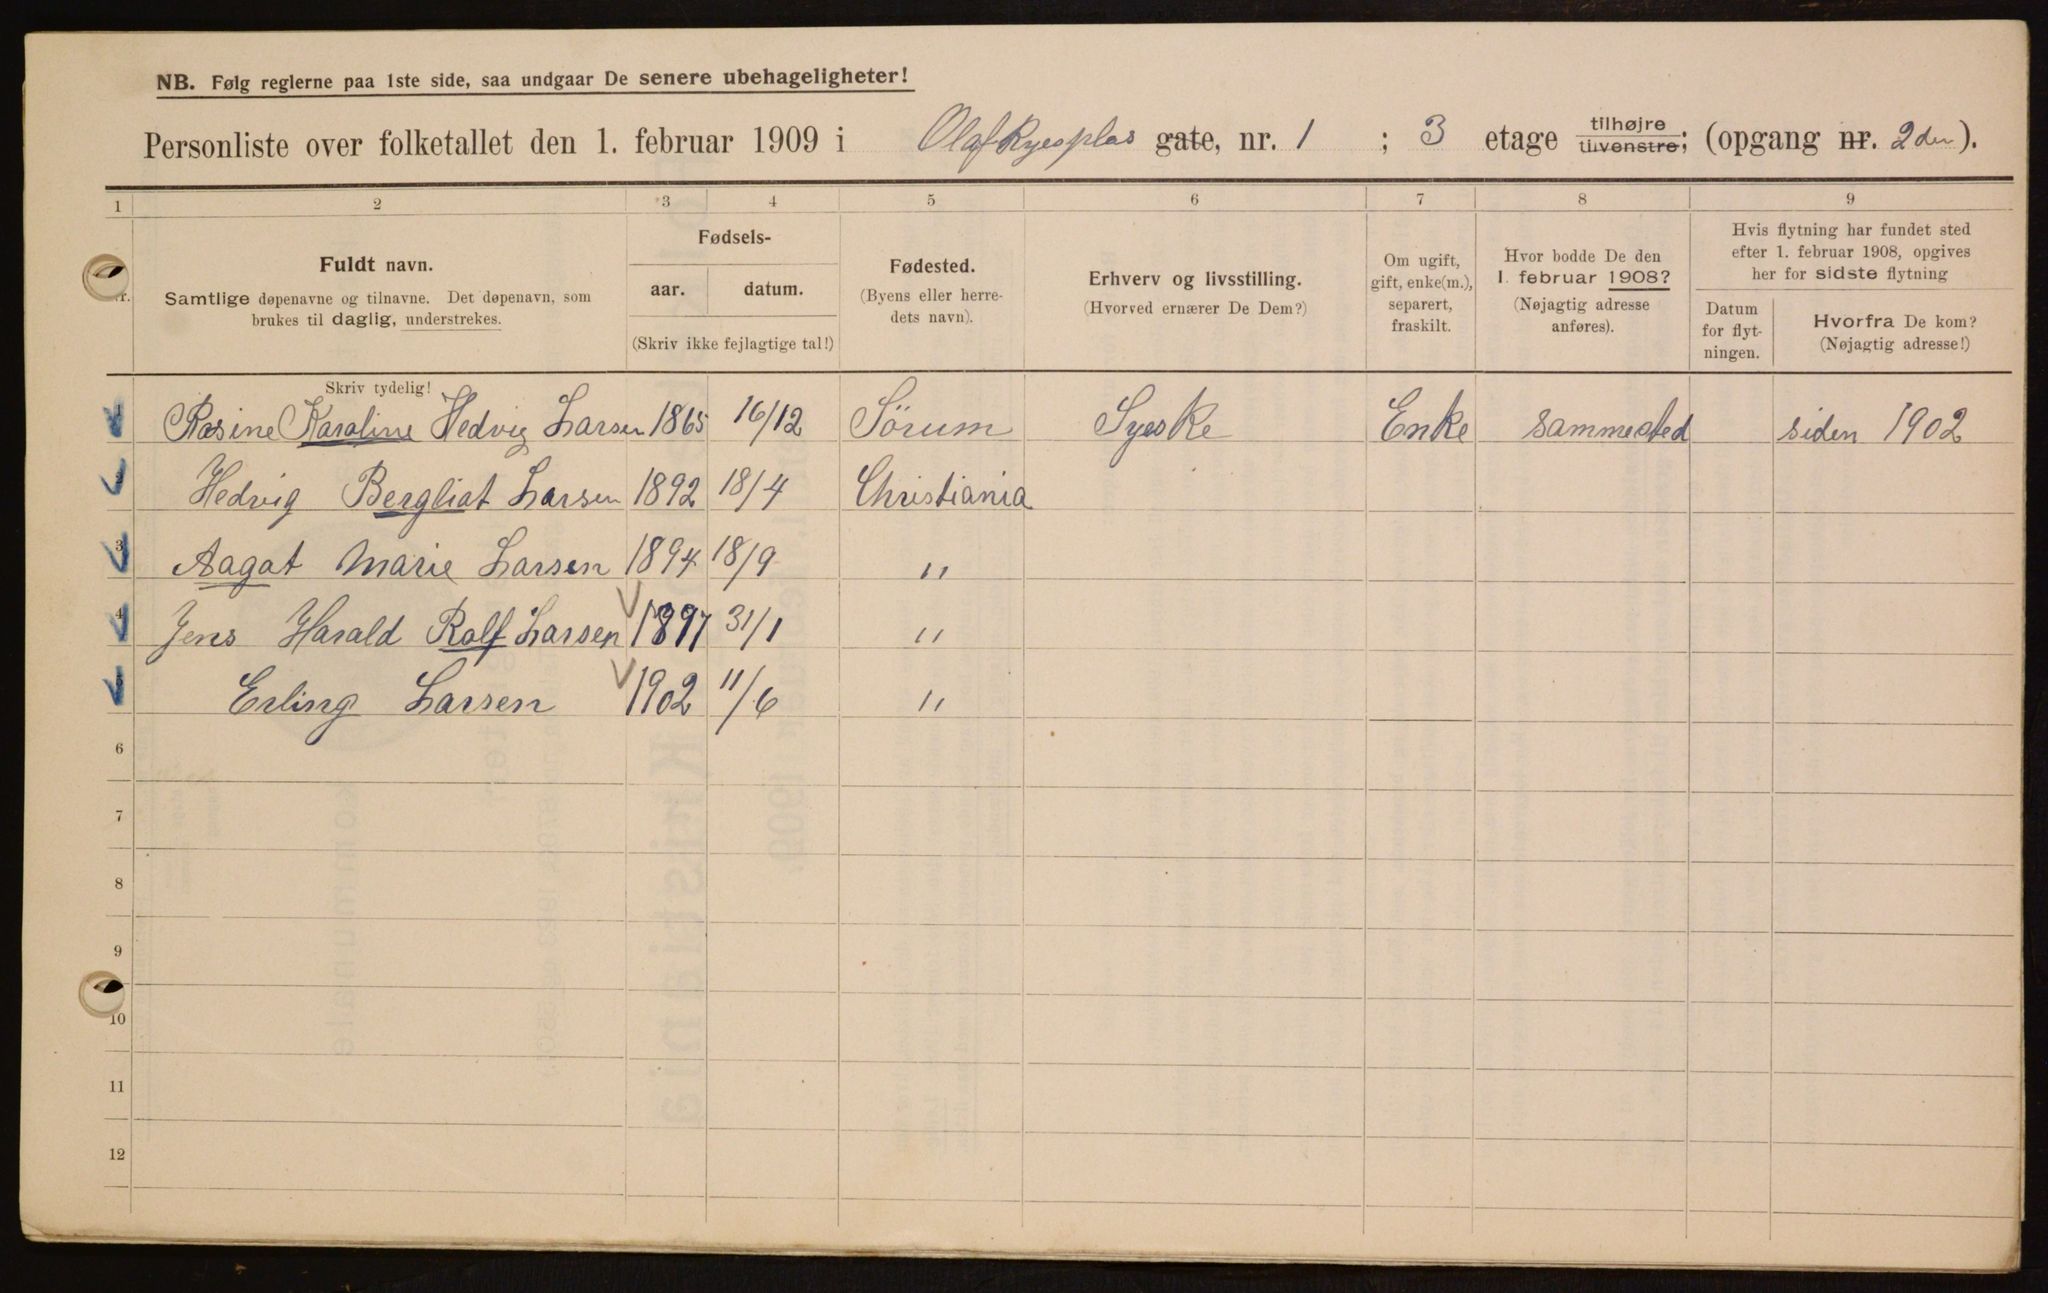 NB. Følg reglerne paa 1ste side, saa undgaar De senere ubehageligheter!
Personliste over folketallet den 1. februar 1909 i Olaf Ryesplas gate, nr. 1 ; 3 etage tilhøjre tilvenstre; (opgang nr. 2den).
1 2 3 4 5 6 7 8 9
Fuldt navn.
Samtlige døpenavne og tilnavne. Det døpenavn, som
brukes til daglig, understrekes.
Skriv tydelig!
Fødsels-
aar. datum.
(Skriv ikke fejlagtige tal!)
Fødested.
(Byens eller herre-
dets navn).
Erhverv og livsstilling.
(Hvorved ernærer De Dem?)
Om ugift,
gift, enke(m.),
separert,
fraskilt.
Hvor bodde De den
1. februar 1908?
(Nøjagtig adresse
anføres).
Hvis flytning har fundet sted
efter 1. februar 1908, opgives
her for sidste flytning
Datum
for flyt-
ningen.
Hvorfra De kom?
(Nøjagtig adresse!)
1 Rosine Karoline Hedvig Larsen 1865 16/12 Sörum Syeske Enke sammested siden 1902
2 Hedvig Bergliot Larsen 1892 18/4 Christiania
3 Aagot Marie Larsen 1894 18/9 "
4 Jens Harald Rolf Larsen 1897 31/1 "
5 Erling Larsen 1902 11/6 "
6
7
8
9
10
11
12